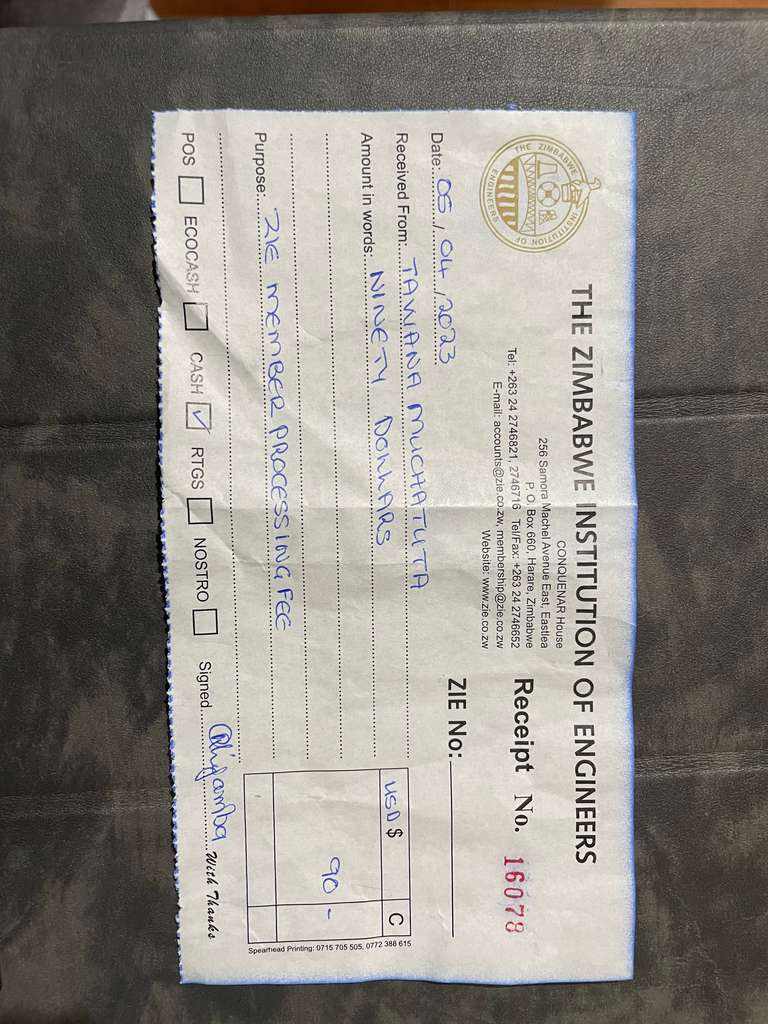 THE ZIMBABWE INSTITUTION OF ENGINEERS
THE ZIMBABWE INSTITUTION OF ENGINEERS
CONQUENAR House
256 Samora Machel Avenue East, Eastlea
P. O. Box 660, Harare, Zimbabwe
Tel: +263 24 2746821, 2746716 Tel/Fax: +263 24 2746652
E-mail: accounts@zie.co.zw, membership@zie.co.zw
Website: www.zie.co.zw
Receipt No. 16078
Date: 05/04/2023
ZIE No:
Received From: TAWANA MUCHATUTA
Amount in words: NINETY DOLLARS
USD $ C
90 -
Purpose: ZIE MEMBER PROCESSING FEE
POS ECOCASH CASH ✓ RTGS NOSTRO Signed With Thanks
Spearhead Printing: 0715 705 505, 0772 388 615